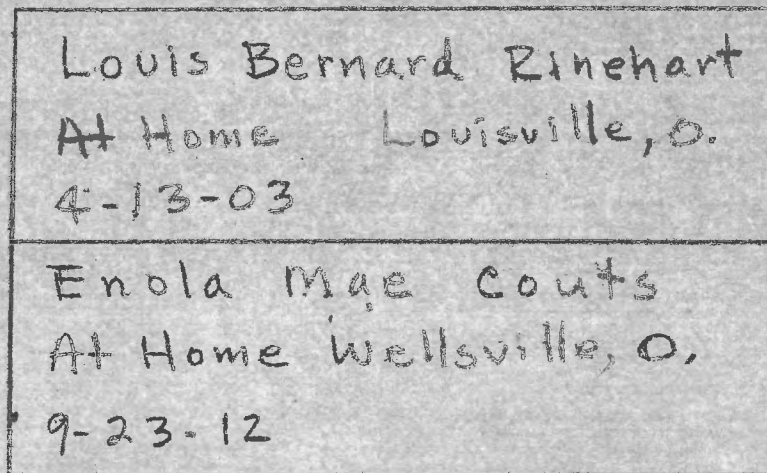 Louis Bernard Rinehart
At Home Louisville, O.
4-13-03
Enola Mae Couts
At Home Wellsville, O.
9-23-12